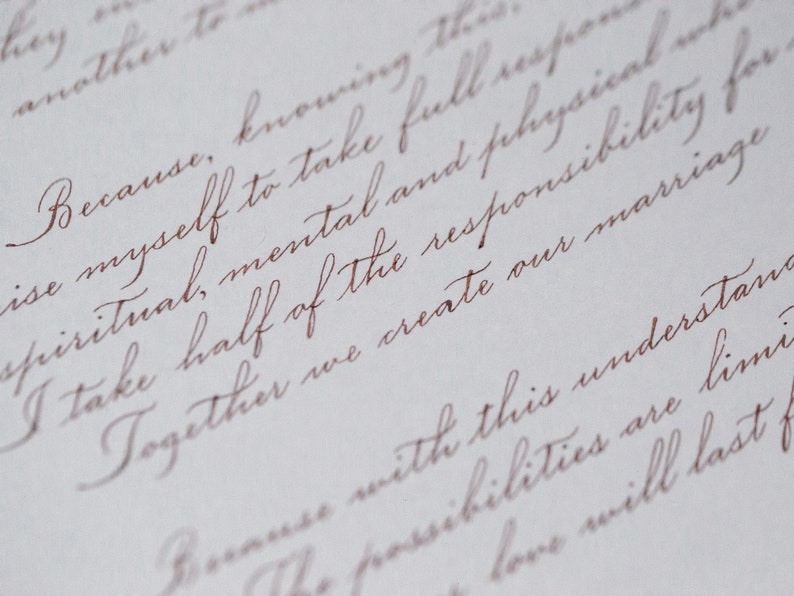 they
another to
Because, knowing this,
myself to take full
spiritual, mental and physical
I take half of the responsibility for
Together we create our marriage
Because with this
The possibilities are
love will last